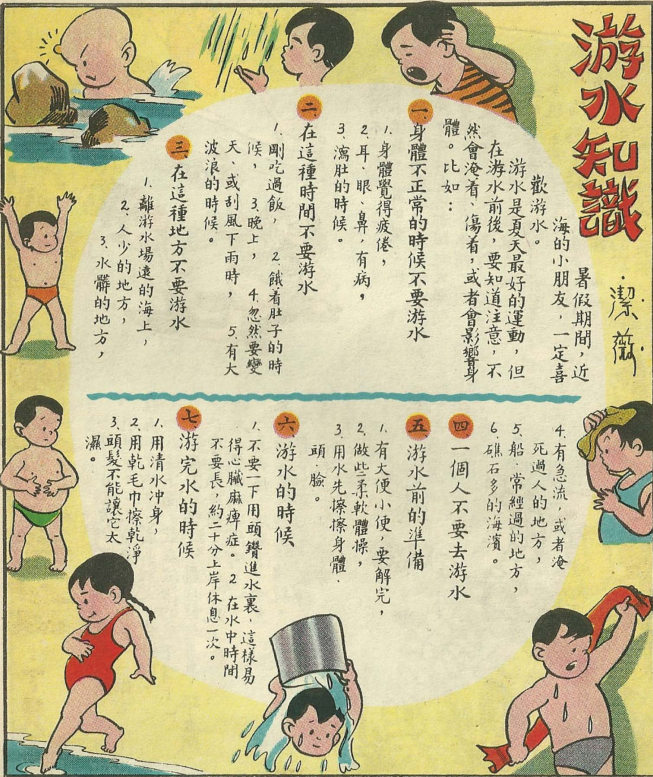 游水知識
潔薇
暑假期間，近
海的小朋友，一定喜
歡游水。
游水是夏天最好的運動，但
在游水前後，要知道注意，不
然會淹着、傷着，或者會影響身
體。比如：
一 身體不正常的時候不要游水
1. 身體覺得疲倦，
2. 耳、眼、鼻，有病，
3. 瀉肚的時候。
二 在這種時間不要游水
1. 剛吃過飯， 2. 餓着肚子的時
候， 3. 晚上， 4. 忽然要變
天、或刮風下雨時， 5. 有大
波浪的時候。
三 在這種地方不要游水
1. 離游水場遠的海上，
2. 人少的地方，
3. 水髒的地方，
4. 有急流，或者淹
死過人的地方，
5. 船、常經過的地方，
6. 礁石多的海濱。
四 一個人不要去游水
五 游水前的準備
1. 有大便小便，要解完，
2. 做些柔軟體操，
3. 用水先擦擦身體、
頭臉。
六 游水的時候
1. 不要一下用頭鑽進水裏，這樣易
得心臟麻痺症。 2. 在水中時間
不要長，約二十分上岸休息一次。
七 游完水的時候
1. 用清水冲身，
2. 用乾毛巾擦乾淨
3. 頭髮不能讓它太
濕。